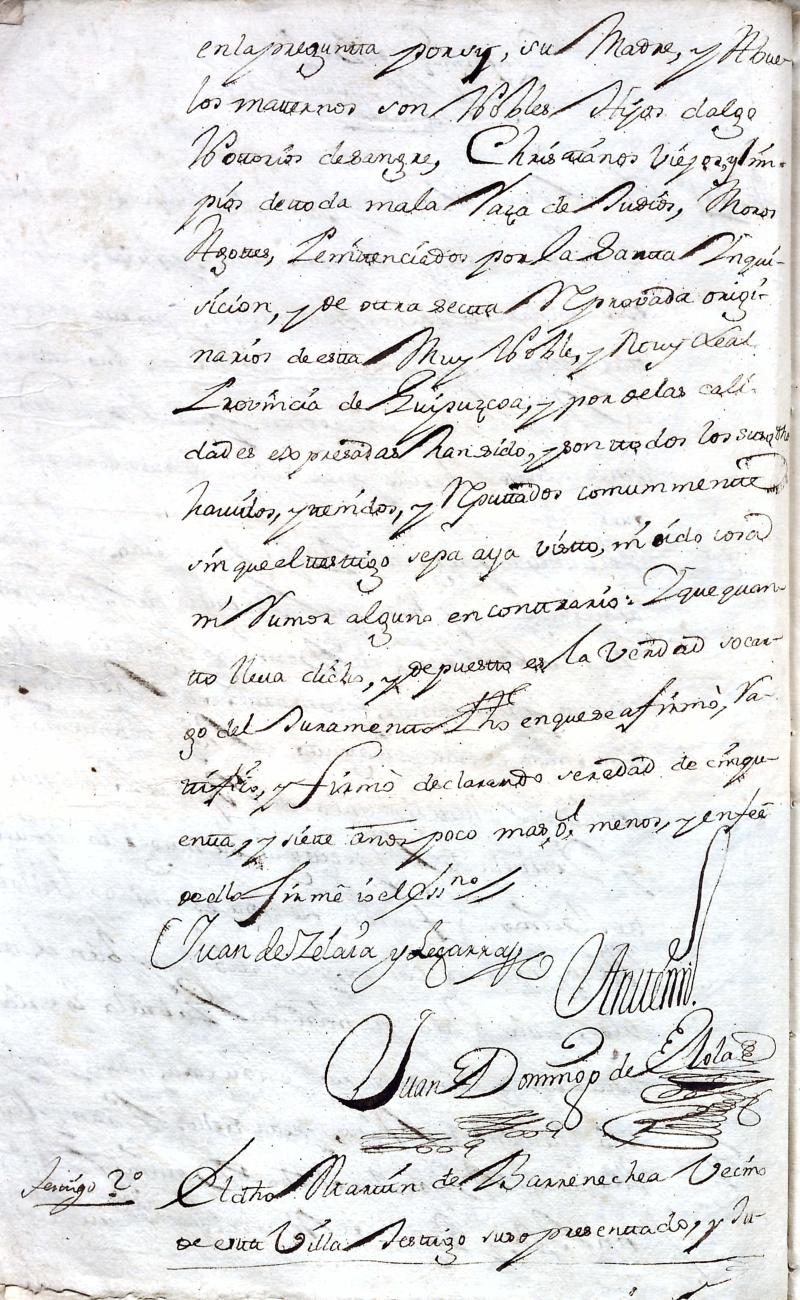 en la preguntta por sy, su Madre, y Abue-
los matternos son Nobles Hijos dalgo
Nottorios de sangre, Christtianos viejos, y lim-
pios de ttoda mala Raça de Judios, Moros
Agottes, Penittenciados por la Santta Inqui-
sicion, y de ottra sectta Reprovada origi-
narios de estta Muy Noble, y Muy Leal
Provincia de Guipuzcoa, y por de las cali-
dades expresadas han sido, y son ttodos los susodhos
havidos, y ttenidos, y Reputtados comunmentte
sin que el testtigo sepa aya vistto, ni oido cosa
ni Rumor alguno en conttrario: Y que quan-
tto lleva dicho, y depuestto es la verdad so car-
go del Juramentto dho en que se afirmò, Ra-
ttificò, y firmò declarando ser edad de cinqu-
entta, y siette años poco mas, ò menos, y en fee
de ello firmè io el Essno
Juan de Zelaia y Legarra
Anttemi.
Juan Domingo de Elola
Testigo 2º
El dho Martin de Barrenechea Vecino
de estta Villa Testtigo suso presenttado, y Ju-